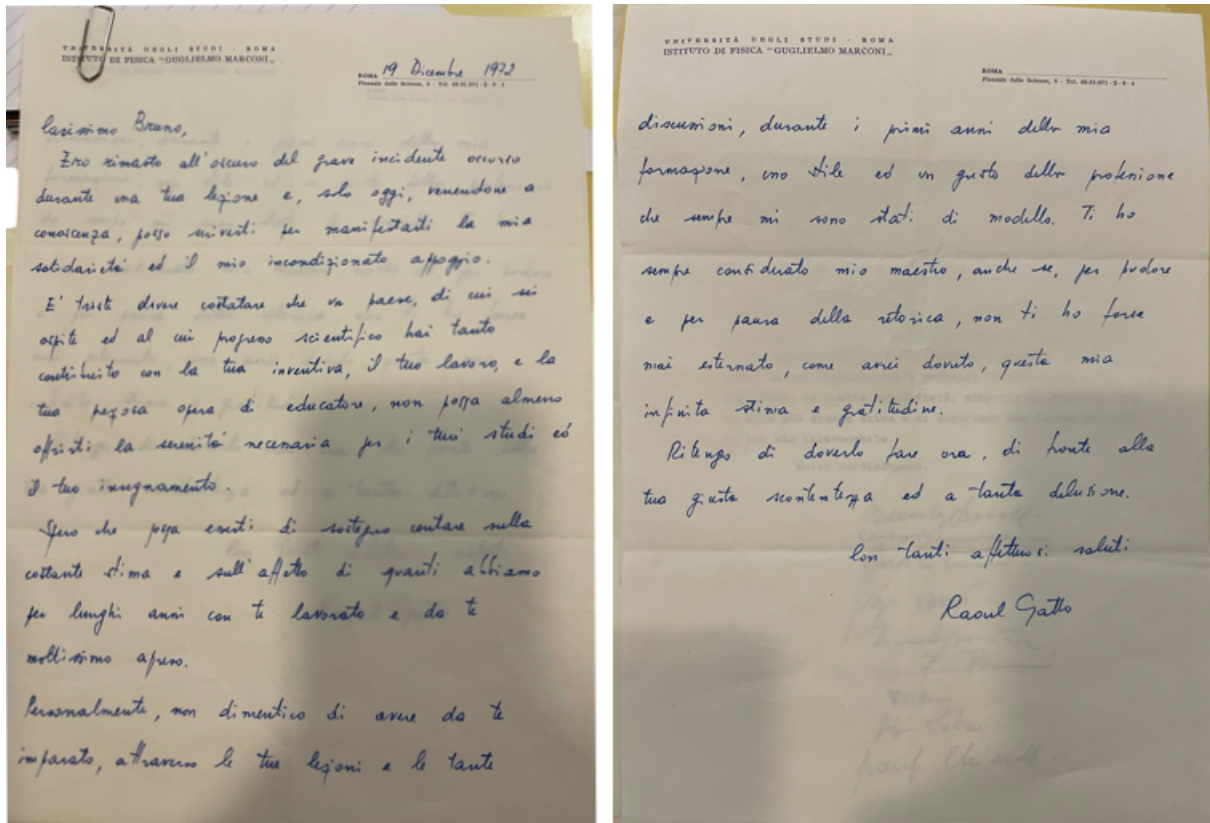 UNIVERSITÀ DEGLI STUDI - ROMA
ISTITUTO DI FISICA "GUGLIELMO MARCONI"
ROMA 19 Dicembre 1972
Piazzale delle Scienze, 5 - Tel.
Carissimo Bruno,
Ero rimasto all'oscuro del grave incidente occorso
durante una tua lezione e, solo oggi, venendone a
conoscenza, posso scriverti per manifestarti la mia
solidarietà ed il mio incondizionato appoggio.
E' triste dovere costatare che un paese, di cui sei
ospite ed al cui progresso scientifico hai tanto
contribuito con la tua inventiva, il tuo lavoro, e la
tua preziosa opera di educatore, non possa almeno
offrirti la serenità necessaria per i tuoi studi ed
il tuo insegnamento.
Spero che possa esserti di sostegno contare sulla
costante stima e sull'affetto di quanti abbiamo
per lunghi anni con te lavorato e da te
moltissimo appreso.
Personalmente, non dimentico di avere da te
imparato, attraverso le tue lezioni e le tante
UNIVERSITÀ DEGLI STUDI - ROMA
ISTITUTO DI FISICA "GUGLIELMO MARCONI"
ROMA
Piazzale delle Scienze, 5 - Tel.
discussioni, durante i primi anni della mia
formazione, uno stile ed un gusto della professione
che sempre mi sono stati di modello. Ti ho
sempre considerato mio maestro, anche se, per pudore
e per paura della retorica, non ti ho forse
mai esternato, come avrei dovuto, questa mia
infinita stima e gratitudine.
Ritengo di doverlo fare ora, di fronte alla
tua giusta scontentezza ed a tanta delusione.
Con tanti affettuosi saluti
Raoul Gatto